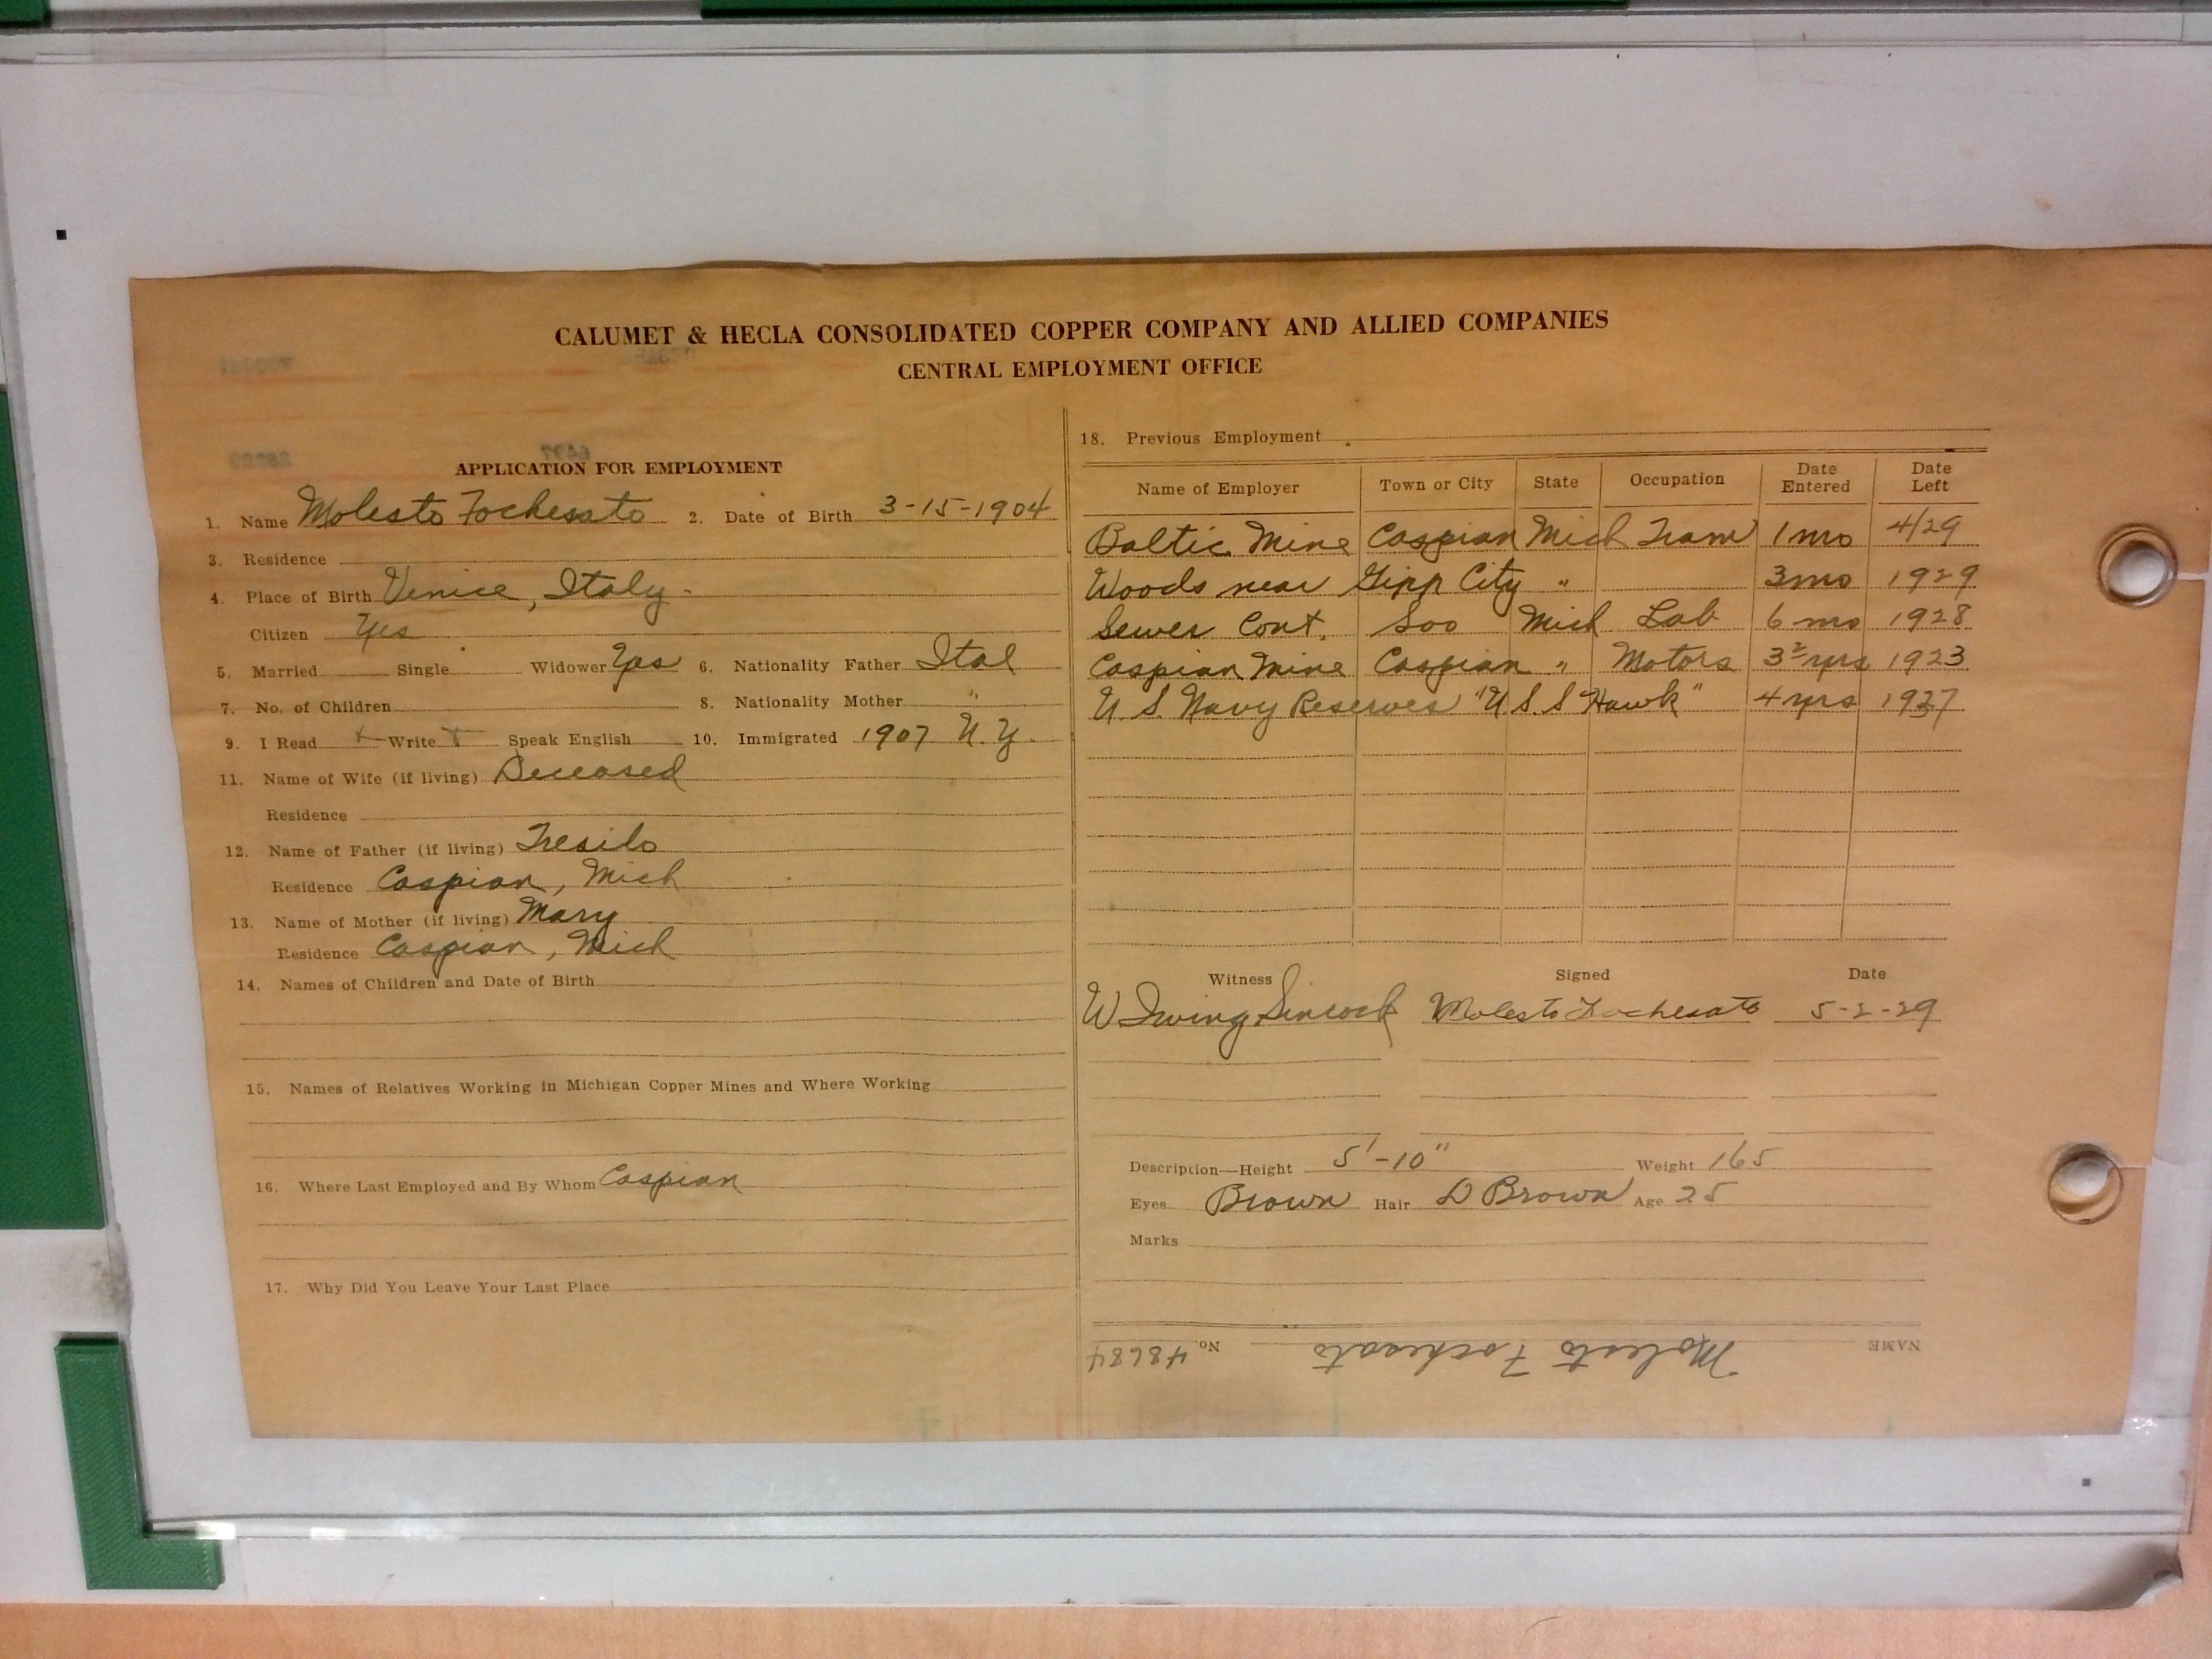 CALUMET & HECLA CONSOLIDATED COPPER COMPANY AND ALLIED COMPANIES
CENTRAL EMPLOYMENT OFFICE
APPLICATION FOR EMPLOYMENT
1. Name Molesto Fochesato 2. Date of Birth 3-15-1904
3. Residence
4. Place of Birth Venice, Italy.
Citizen Yes
5. Married Single Widower Yes 6. Nationality Father Ital
7. No. of Children 8. Nationality Mother "
9. I Read Write Speak English 10. Immigrated 1907 N.Y.
11. Name of Wife (if living) Deceased
Residence
12. Name of Father (if living) Tresilo
Residence Caspian, Mich
13. Name of Mother (if living) Mary
Residence Caspian, Mich
14. Names of Children and Date of Birth
15. Names of Relatives Working in Michigan Copper Mines and Where Working
16. Where Last Employed and By Whom Caspian
17. Why Did You Leave Your Last Place
18. Previous Employment
Name of Employer Town or City State Occupation Date Entered Date Left
Baltic Mine Caspian Mich Tram 1 mo 4/29
Woods near Gipp City " 3 mo 1929
Sewer Cont. Soo Mich Lab 6 mo 1928
Caspian Mine Caspian " Motors yrs 1923
U. S. Navy Reserves "U S. S Hawk" 4 yrs 1927
Witness Signed Date
W Irving Sincock Molesto Fochesato 5-2-29
Description—Height 5'-10" Weight 165
Eyes Brown Hair D Brown Age 25
Marks
NAME Molesto Fochesato No. 48684